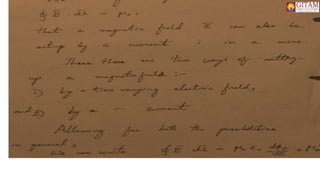 GITAM
∮ B · dl = μ₀ i
that a magnetic field B can also be
setup by a current i in a wire
Thus there are two ways of setting-
up a magnetic field :-
1) by a time varying electric field,
and 2) by a current
Allowing for both the possibilities
in general,
we can write ∮ B dl = μ₀ ε₀ dϕE + μ₀